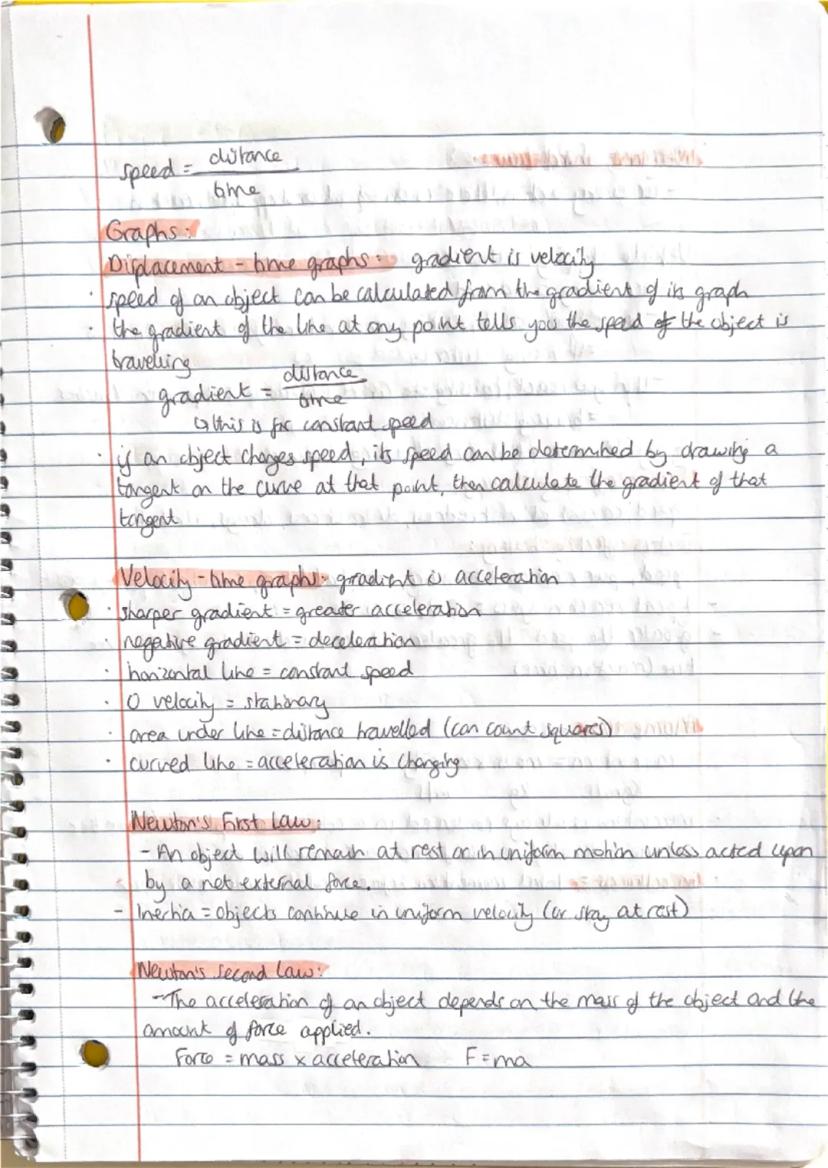 speed = distance
time
Graphs:
Displacement - time graphs: gradient is velocity
· speed of an object can be calculated from the gradient of its graph
· the gradient of the line at any point tells you the speed of the object is
travelling
gradient = distance
time
↳ this is for constant speed
· if an object changes speed, its speed can be determined by drawing a
tangent on the curve at that point, then calculate the gradient of that
tangent
Velocity - time graph: gradient is acceleration
· sharper gradient = greater acceleration
· negative gradient = deceleration
· horizontal line = constant speed
· 0 velocity = stationary
· area under line = distance travelled (can count squares)
· curved line = acceleration is changing
Newton's First Law:
- An object will remain at rest or in uniform motion unless acted upon
by a net external force.
- Inertia = objects continue in uniform velocity (or stay at rest)
Newton's Second Law:
- The acceleration of an object depends on the mass of the object and the
amount of force applied.
Force = mass x acceleration F = ma